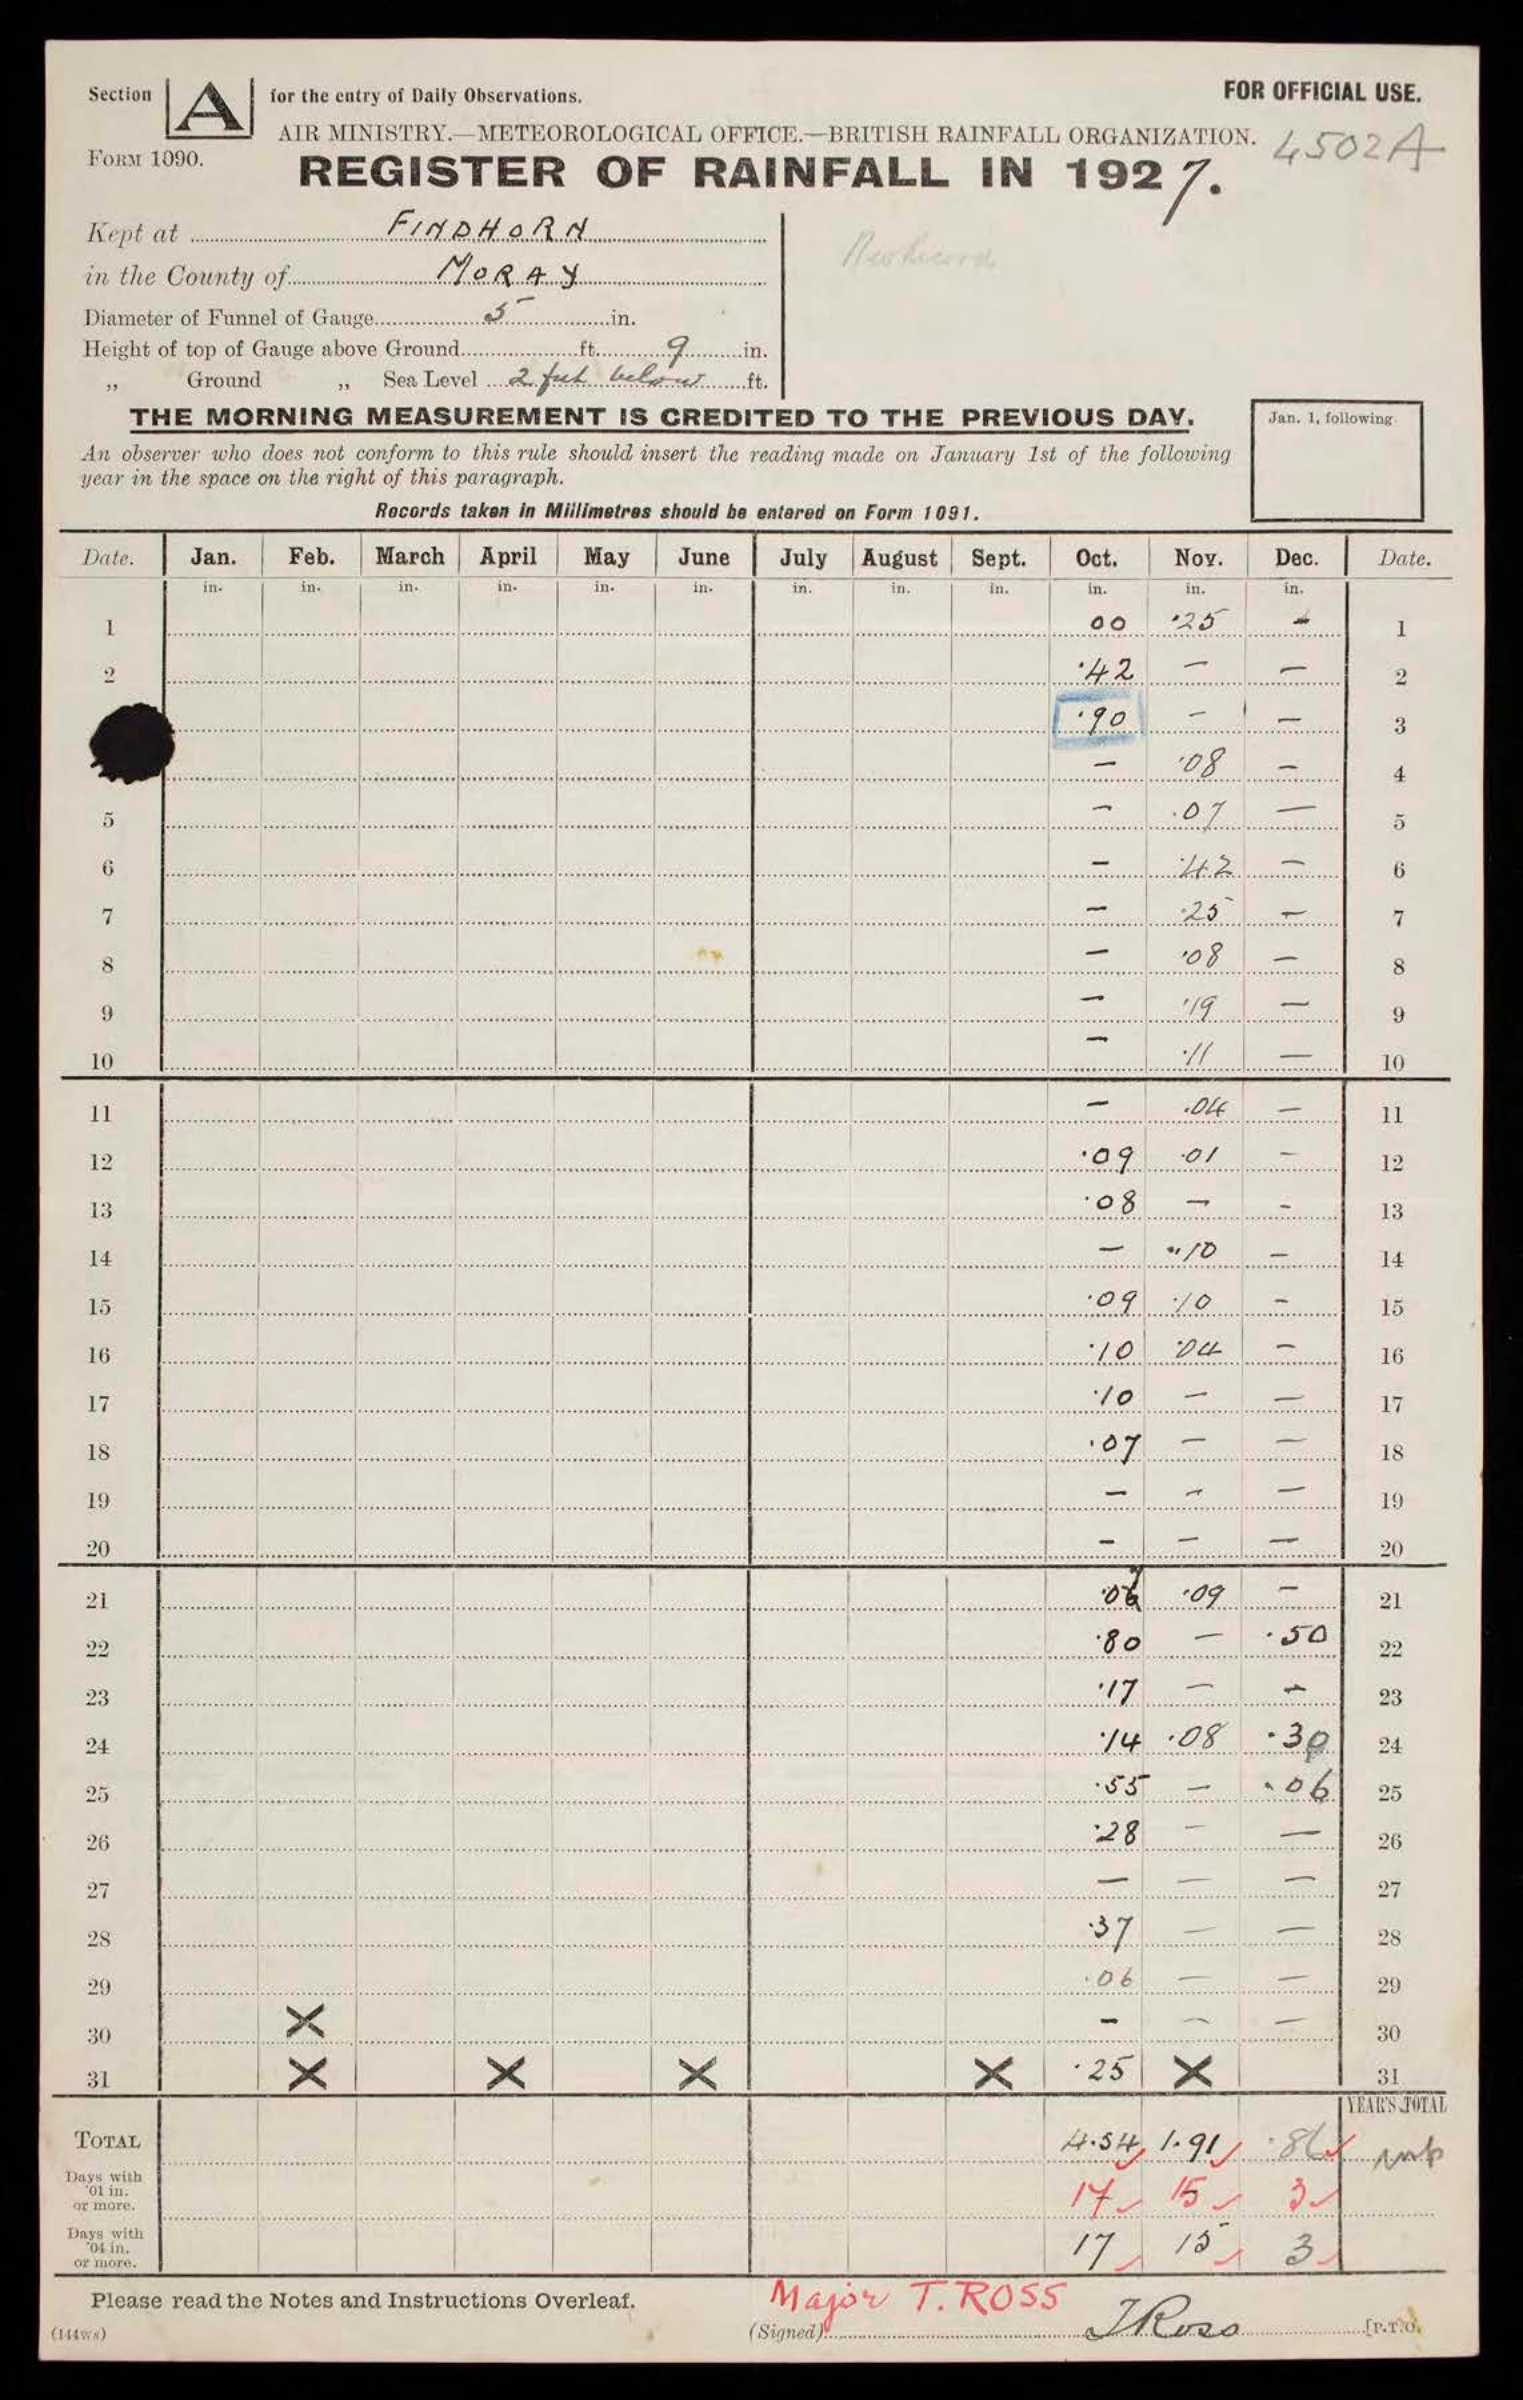 Section A for the entry of Daily Observations. FOR OFFICIAL USE.
AIR MINISTRY.—METEOROLOGICAL OFFICE.—BRITISH RAINFALL ORGANIZATION. 4502A
FORM 1090.
REGISTER OF RAINFALL IN 1927.
Kept at FINDHORN
in the County of MORAY
Diameter of Funnel of Gauge 5 in.
Height of top of Gauge above Ground ft. 9 in.
„ Ground „ Sea Level 2 feet below ft.
THE MORNING MEASUREMENT IS CREDITED TO THE PREVIOUS DAY.
Jan. 1, following.
An observer who does not conform to this rule should insert the reading made on January 1st of the following
year in the space on the right of this paragraph.
Records taken in Millimetres should be entered on Form 1091.
Date. Jan. Feb. March April May June July August Sept. Oct. Nov. Dec. Date.
in. in. in. in. in. in. in. in. in. in. in. in.
1 00 .25 - 1
2 .42 - - 2
.90 - - 3
- .08 - 4
5 - .07 - 5
6 - .42 - 6
7 - .25 - 7
8 - .08 - 8
9 - .19 - 9
10 - .11 - 10
11 - .04 - 11
12 .09 .01 - 12
13 .08 - - 13
14 - .10 - 14
15 .09 .10 - 15
16 .10 .04 - 16
17 .10 - - 17
18 .07 - - 18
19 - - - 19
20 - - - 20
21 .09 - 21
22 .80 - .50 22
23 .17 - - 23
24 .14 .08 .30 24
25 .55 - .06 25
26 .28 - - 26
27 - - - 27
28 .37 - - 28
29 .06 - - 29
30 X - - - 30
31 X X X X .25 X 31
YEAR'S TOTAL
TOTAL 4.54 1.91 .86
Days with .01 in. or more. 17 15 3
Days with .04 in. or more. 17 15 3
Please read the Notes and Instructions Overleaf. Major T. ROSS
(144ws) (Signed) T Ross [P.T.O.